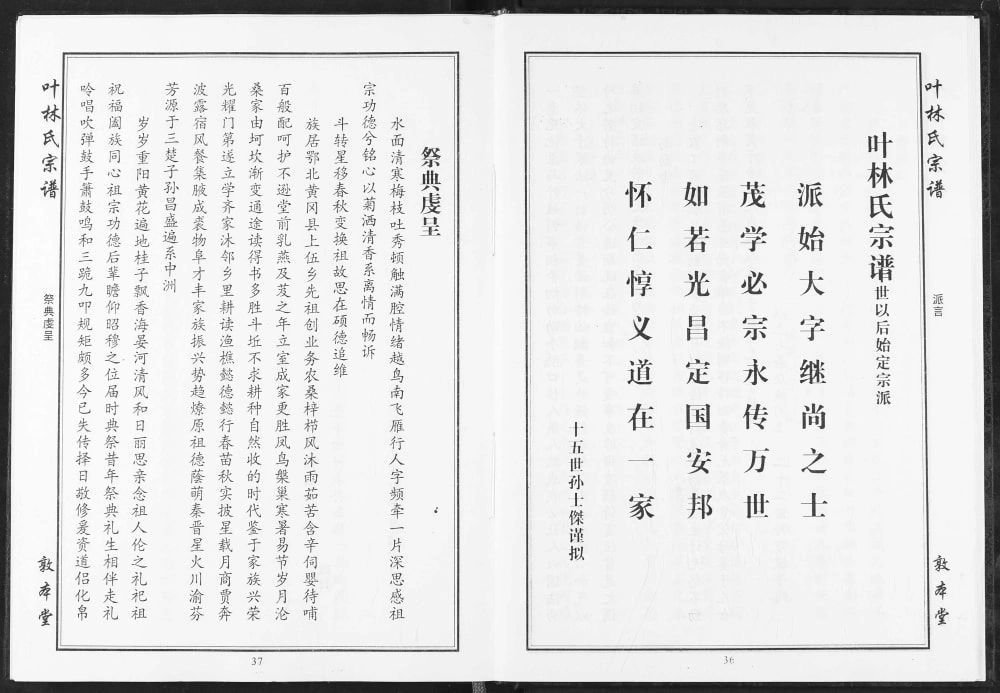 叶林氏宗谱
派言
敦本堂
叶林氏宗谱世以后始定宗派
派始大字继尚之士
茂学必宗永传万世
如若光昌定国安邦
怀仁惇义道在一家
十五世孙士傑谨拟
36
祭典虔呈
水面清寒梅枝吐秀顿触满腔情绪越鸟南飞雁行人字频牵一片深思感祖
宗功德兮铭心以菊洒清香系离情而畅诉
斗转星移春秋变换祖故思在硕德追维
族居鄂北黄冈县上伍乡先祖创业务农桑梓栉风沐雨茹苦含辛伺婴待哺
百般配呵护不逊堂前乳燕及芨之年立室成家更胜凤鸟槃巢寒暑易节岁月沧
桑家由坷坎渐变通途读得书多胜斗坵不求耕种自然收的时代鉴于家族兴荣
光耀门第遂立学齐家沐邻乡里耕读渔樵懿德懿行春苗秋实披星载月商贾奔
波露宿风餐集腋成裘物阜才丰家族振兴势趋燎原祖德蔭萌秦晋星火川渝芬
芳源于三楚子孙昌盛遍系中洲
岁岁重阳黄花遍地桂子飘香海晏河清风和日丽思亲念祖人伦之礼祀祖
祝福阖族同心祖宗功德后辈瞻仰昭穆之位届时典祭昔年祭典礼生相伴走礼
吟唱吹弹鼓手箫鼓鸣和三跪九叩规矩颇多今已失传择日敬修爰资道侣化帛
叶林氏宗谱
祭典虔呈
敦本堂
37